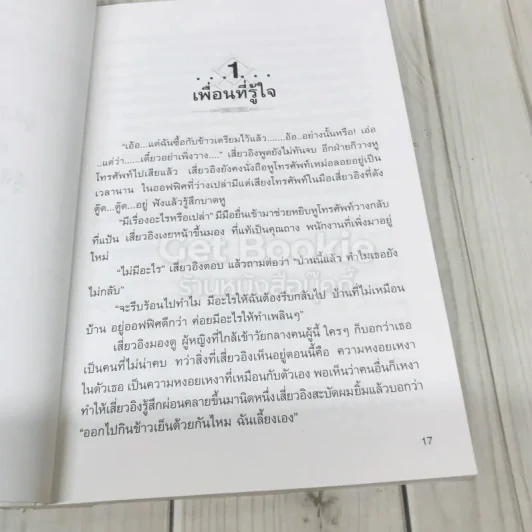 1
เพื่อนที่รู้ใจ
“เอ้อ...แต่ฉันซื้อกับข้าวเตรียมไว้แล้ว.......อ้อ..อย่างนั้นหรือ! เอ่อ
..แต่ว่า......เดี๋ยวอย่าเพิ่งวาง....” เสี่ยวอิงพูดยังไม่ทันจบ อีกฝ่ายก็วางหู
โทรศัพท์ไปเสียแล้ว เสี่ยวอิงยังคงนั่งถือหูโทรศัพท์เหม่อลอยอยู่เป็น
เวลานาน ในออฟฟิศที่ว่างเปล่ามีแต่เสียงโทรศัพท์ในมือเสี่ยวอิงที่ดัง
ตู๊ด...ตู๊ด...อยู่ ฟังแล้วรู้สึกบาดหู
“มีเรื่องอะไรหรือเปล่า” มีมือยื่นเข้ามาช่วยหยิบหูโทรศัพท์วางกลับ
ที่แป้น เสี่ยวอิงเงยหน้าขึ้นมอง ที่แท้เป็นคุณถาง พนักงานที่เพิ่งมาอยู่
ใหม่
“ไม่มีอะไร” เสี่ยวอิงตอบ แล้วถามต่อว่า “ป่านนี้แล้ว ทำไมเธอยัง
ไม่กลับ”
“จะรีบร้อนไปทำไม มีอะไรให้ฉันต้องรีบกลับไป บ้านที่ไม่เหมือน
บ้าน อยู่ออฟฟิศดีกว่า ค่อยมีอะไรให้ทำเพลินๆ”
เสี่ยวอิงมองดู ผู้หญิงที่ใกล้เข้าวัยกลางคนผู้นี้ ใครๆ ก็บอกว่าเธอ
เป็นคนที่ไม่น่าคบ ทว่าสิ่งที่เสี่ยวอิงเห็นอยู่ตอนนี้คือ ความหงอยเหงา
ในตัวเธอ เป็นความหงอยเหงาที่เหมือนกับตัวเอง พอเห็นว่าคนอื่นก็เหงา
ทำให้เสี่ยวอิงรู้สึกผ่อนคลายขึ้นมานิดหนึ่งเสี่ยวอิงสะบัดผมยิ้มแล้วบอกว่า
“ออกไปกินข้าวเย็นด้วยกันไหม ฉันเลี้ยงเอง”
17
Get Bookie
ร้านหนังสือบุ๊คกี้